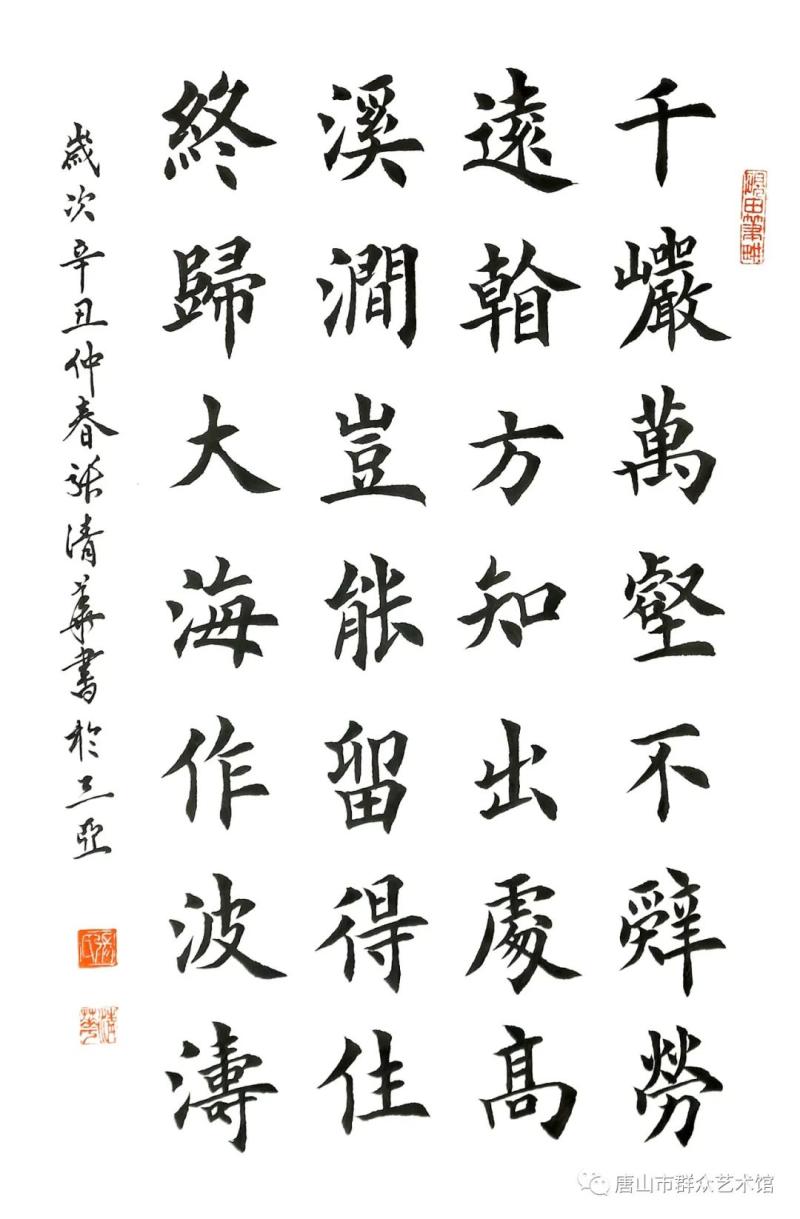 硯田筆耕
千巗萬壑不辭勞
遠看方知出處高
溪澗豈能留得住
終歸大海作波濤
歲次辛丑仲春張清華書於三亞
張氏
清華
唐山市群众艺术馆